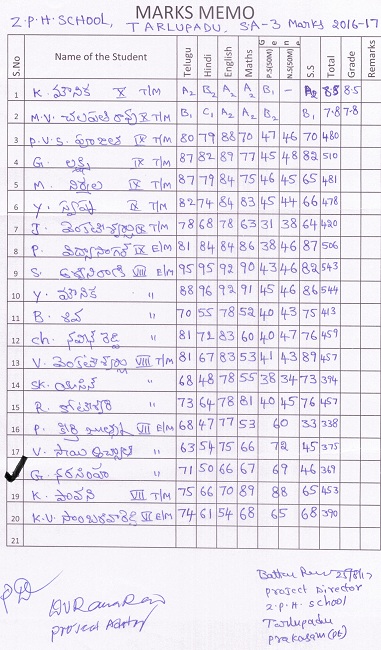 MARKS MEMO
Z.P.H. SCHOOL, TARLUPADU, SA-3 Marks 2016-17
S.No Name of the Student Telugu Hindi English Maths Gene P.S(50M) N.S(50M) S.S Total Grade Remarks
1 K. మౌనిక X T/M A2 B2 A2 A2 B1 - A2 8.8 8.5
2 M.V. X T/M B1 C1 A2 A2 B2 B1 7.8 7.8
3 P.V.S. IX T/M 80 79 88 70 47 46 70 480
4 G. లక్ష్మి IX T/M 87 82 89 77 45 48 82 510
5 M. నిర్మల IX T/M 87 79 84 75 46 45 65 481
6 Y. స్వప్న IX T/M 82 74 84 83 45 44 66 478
7 IX T/M 78 68 78 63 31 38 64 420
8 P. IX E/M 81 84 84 86 38 46 87 506
9 S. VIII E/M 95 95 92 90 43 46 82 543
10 Y. మౌనిక " 88 96 92 91 45 46 86 544
11 B. శివ " 70 55 78 52 40 43 75 413
12 ch. నవీన్ రెడ్డి " 81 72 83 60 40 47 76 459
13 V. VIII T/M 81 67 83 53 41 43 89 457
14 SK. " 68 48 78 55 38 34 73 394
15 R. " 73 64 78 81 40 45 76 457
16 P. VII E/M 68 47 77 53 60 33 338
17 V. సాయి " 63 54 75 66 72 45 375
18 G. నరసింహ " 71 50 66 67 69 46 369
19 K. పావని VII T/M 75 66 70 89 88 65 453
20 K.V. VI E/M 74 61 54 68 65 68 390
25/8/17
Project Director
Z.P.H. School
Tarlupadu
Prakasam (Dt)